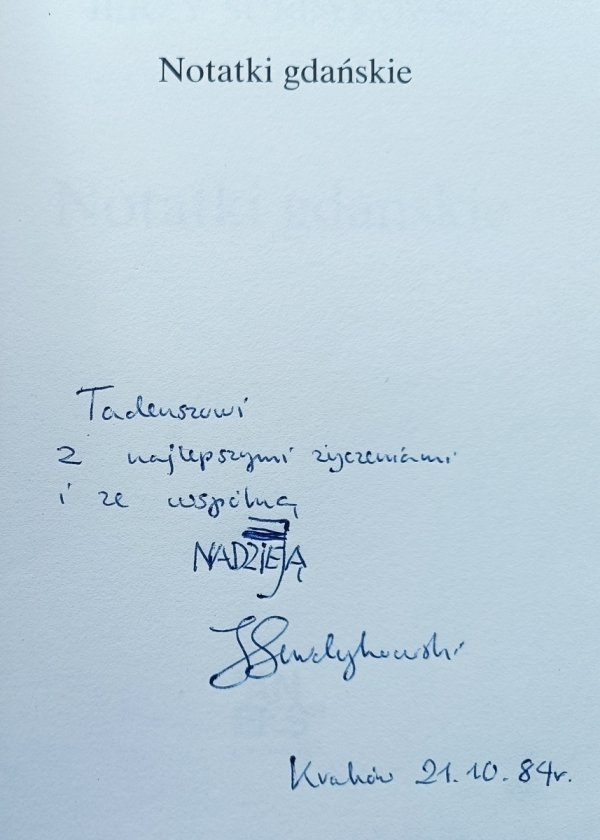 Notatki gdańskie
Tadeuszowi
z najlepszymi życzeniami
i ze wspólną
NADZIEJĄ
Kraków 21.10.84r.